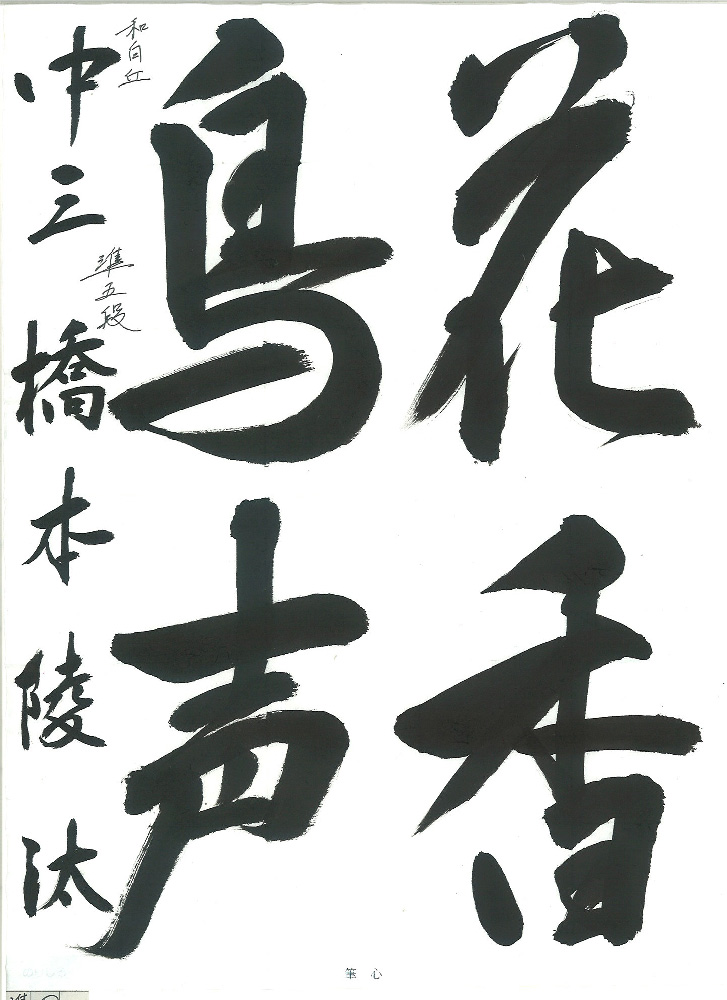 花香
鳥声
和白丘
中三 橋本陵汰
準五段
筆心